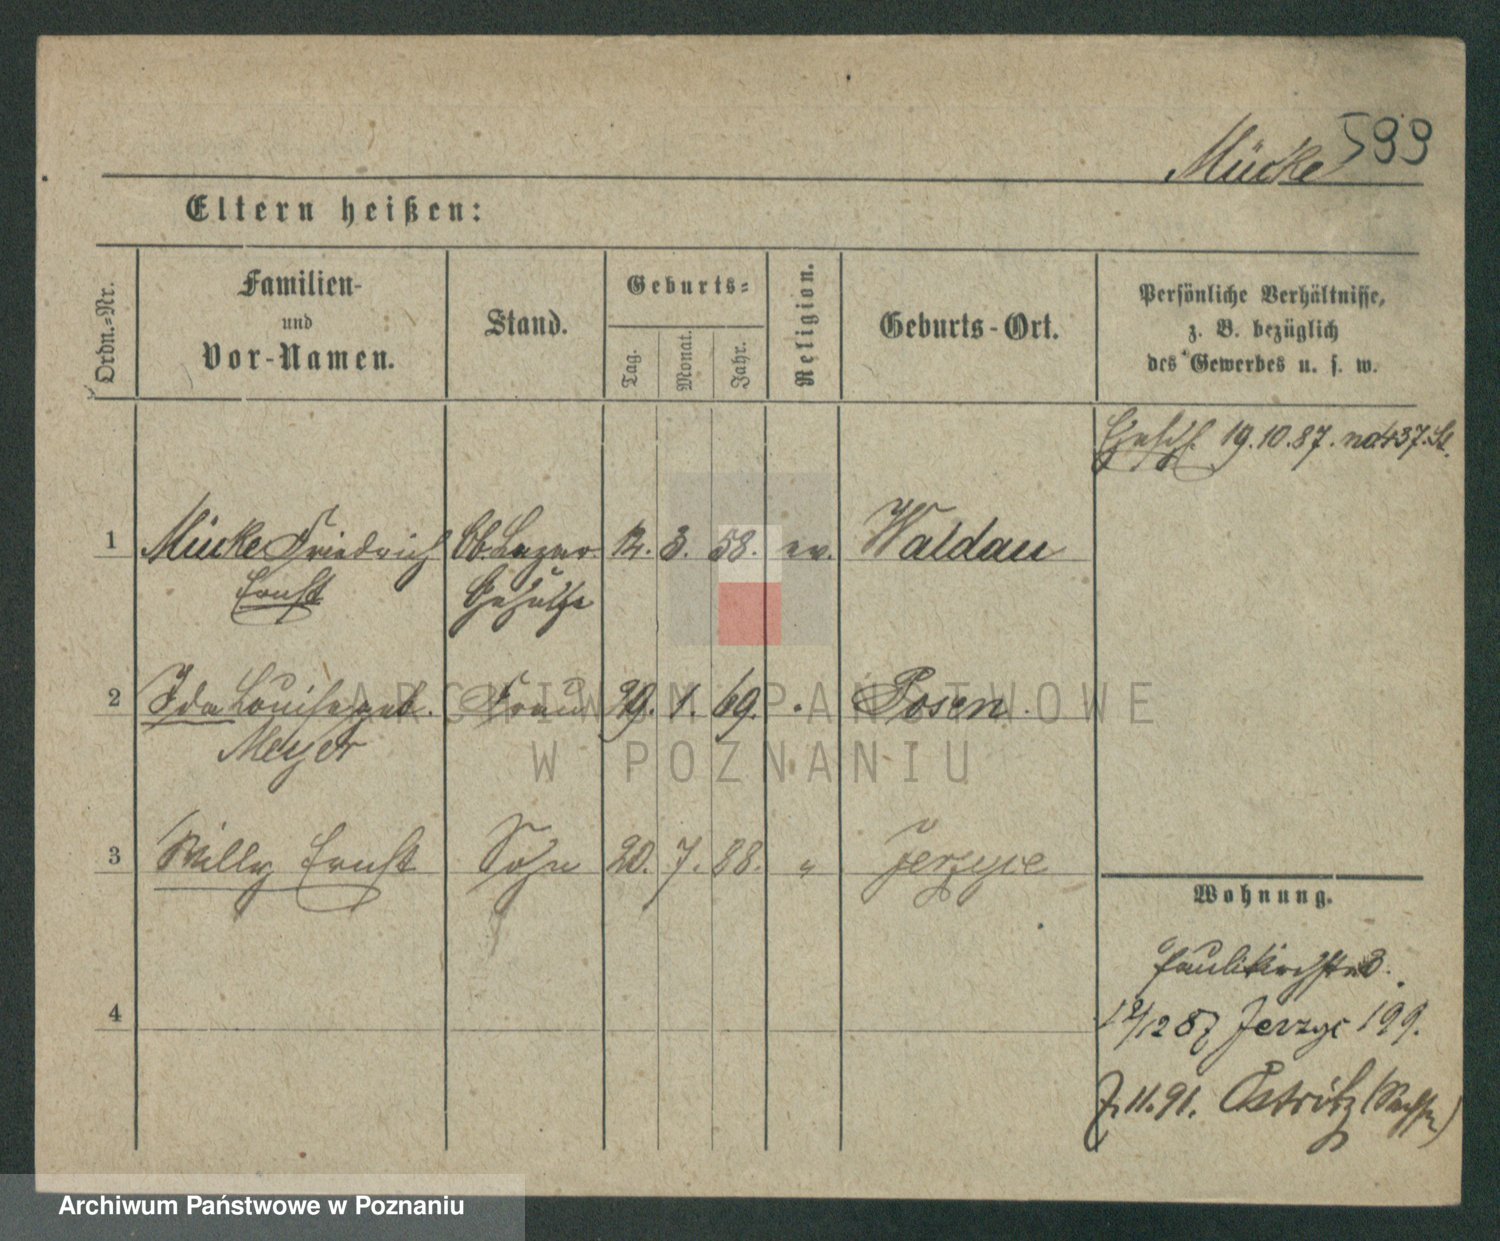 Mücke 599
Eltern heißen:
Ordn.-Nr.
Familien-
und
Vor-Namen.
Stand.
Geburts-
Tag.
Monat.
Jahr.
Religion.
Geburts-Ort.
Persönliche Verhältnisse,
z. B. bezüglich
des Gewerbes u. s. w.
Gesch. 19.10.87.
1 Mücke Friedrich 12. 3. 58. ev. Waldau
Ernst Gehülfe
2 Ida Louise geb. Frau 29. 1. 69. Posen.
Meyer
3 Willy Ernst Sohn 20. 7. 88. " Jerzyce
4
Wohnung.
Paulikirchstr. 3.
12/12 87 Jerzyc 199.
11.91. Ostritz (Sachsen)
ARCHIWUM PAŃSTWOWE
W POZNANIU
Archiwum Państwowe w Poznaniu